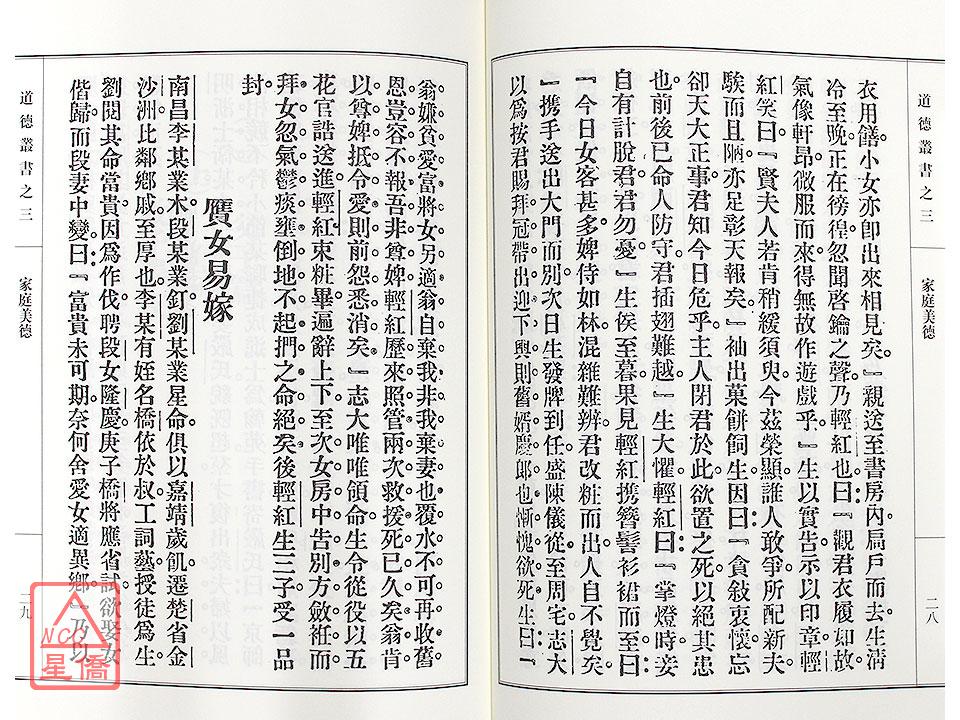 道德叢書之三
家庭美德
二八
衣用饍小女亦卽出來相見矣。』親送至書房內扃戶而去生清
冷至晚正在徬徨忽聞啓鑰之聲乃輕紅也曰『觀君衣履如故
氣像軒昂微服而來得無故作遊戲乎。』生以實告示以印章輕
紅笑曰『賢夫人若肯稍緩須臾今茲榮顯誰人敢爭所配新夫
騃而且陋亦足彰天報矣。』袖出菓餅飼生因曰『貪敍衷懷忘
卻天大正事君知今日危乎主人閉君於此欲置之死以絕其患
也前後已命人防守君插翅難越』生大懼輕紅曰『掌燈時妾
自有計脫君君勿憂』生俟至暮果見輕紅携簪髻衫裙而至曰
『今日女客甚多婢侍如林混雜難辨君改粧而出人自不覺矣
』携手送出大門而別次日生發牌到任盛陳儀從至周宅志大
以爲按君賜拜冠帶出迎下輿則舊婿慶郎也慚愧欲死生曰『
翁嫌貧愛富將女另適翁自棄我非我棄妻也覆水不可再收舊
恩豈容不報吾非尊婢輕紅歷來照管兩次救援死已久矣翁肯
以尊婢抵令愛則前怨悉消矣』志大唯唯領命生令從役以五
花官誥送進輕紅束粧畢遍辭上下至次女房中告別方斂袵而
拜女忽氣鬱痰壅倒地不起捫之命絕矣後輕紅生三子受一品
封。
贋女易嫁
南昌李某業木段某業釘劉某業星命俱以嘉靖歲飢遷楚省金
沙洲比鄰鄉戚至厚也李某有姪名橋依於叔工詞藝授徒爲生
劉閱其命當貴因爲作伐聘段女隆慶庚子橋將應省試欲娶女
偕歸而段妻中變曰『富貴未可期奈何舍愛女適異鄉』乃以
道德叢書之三
家庭美德
二九
NCC
星僑